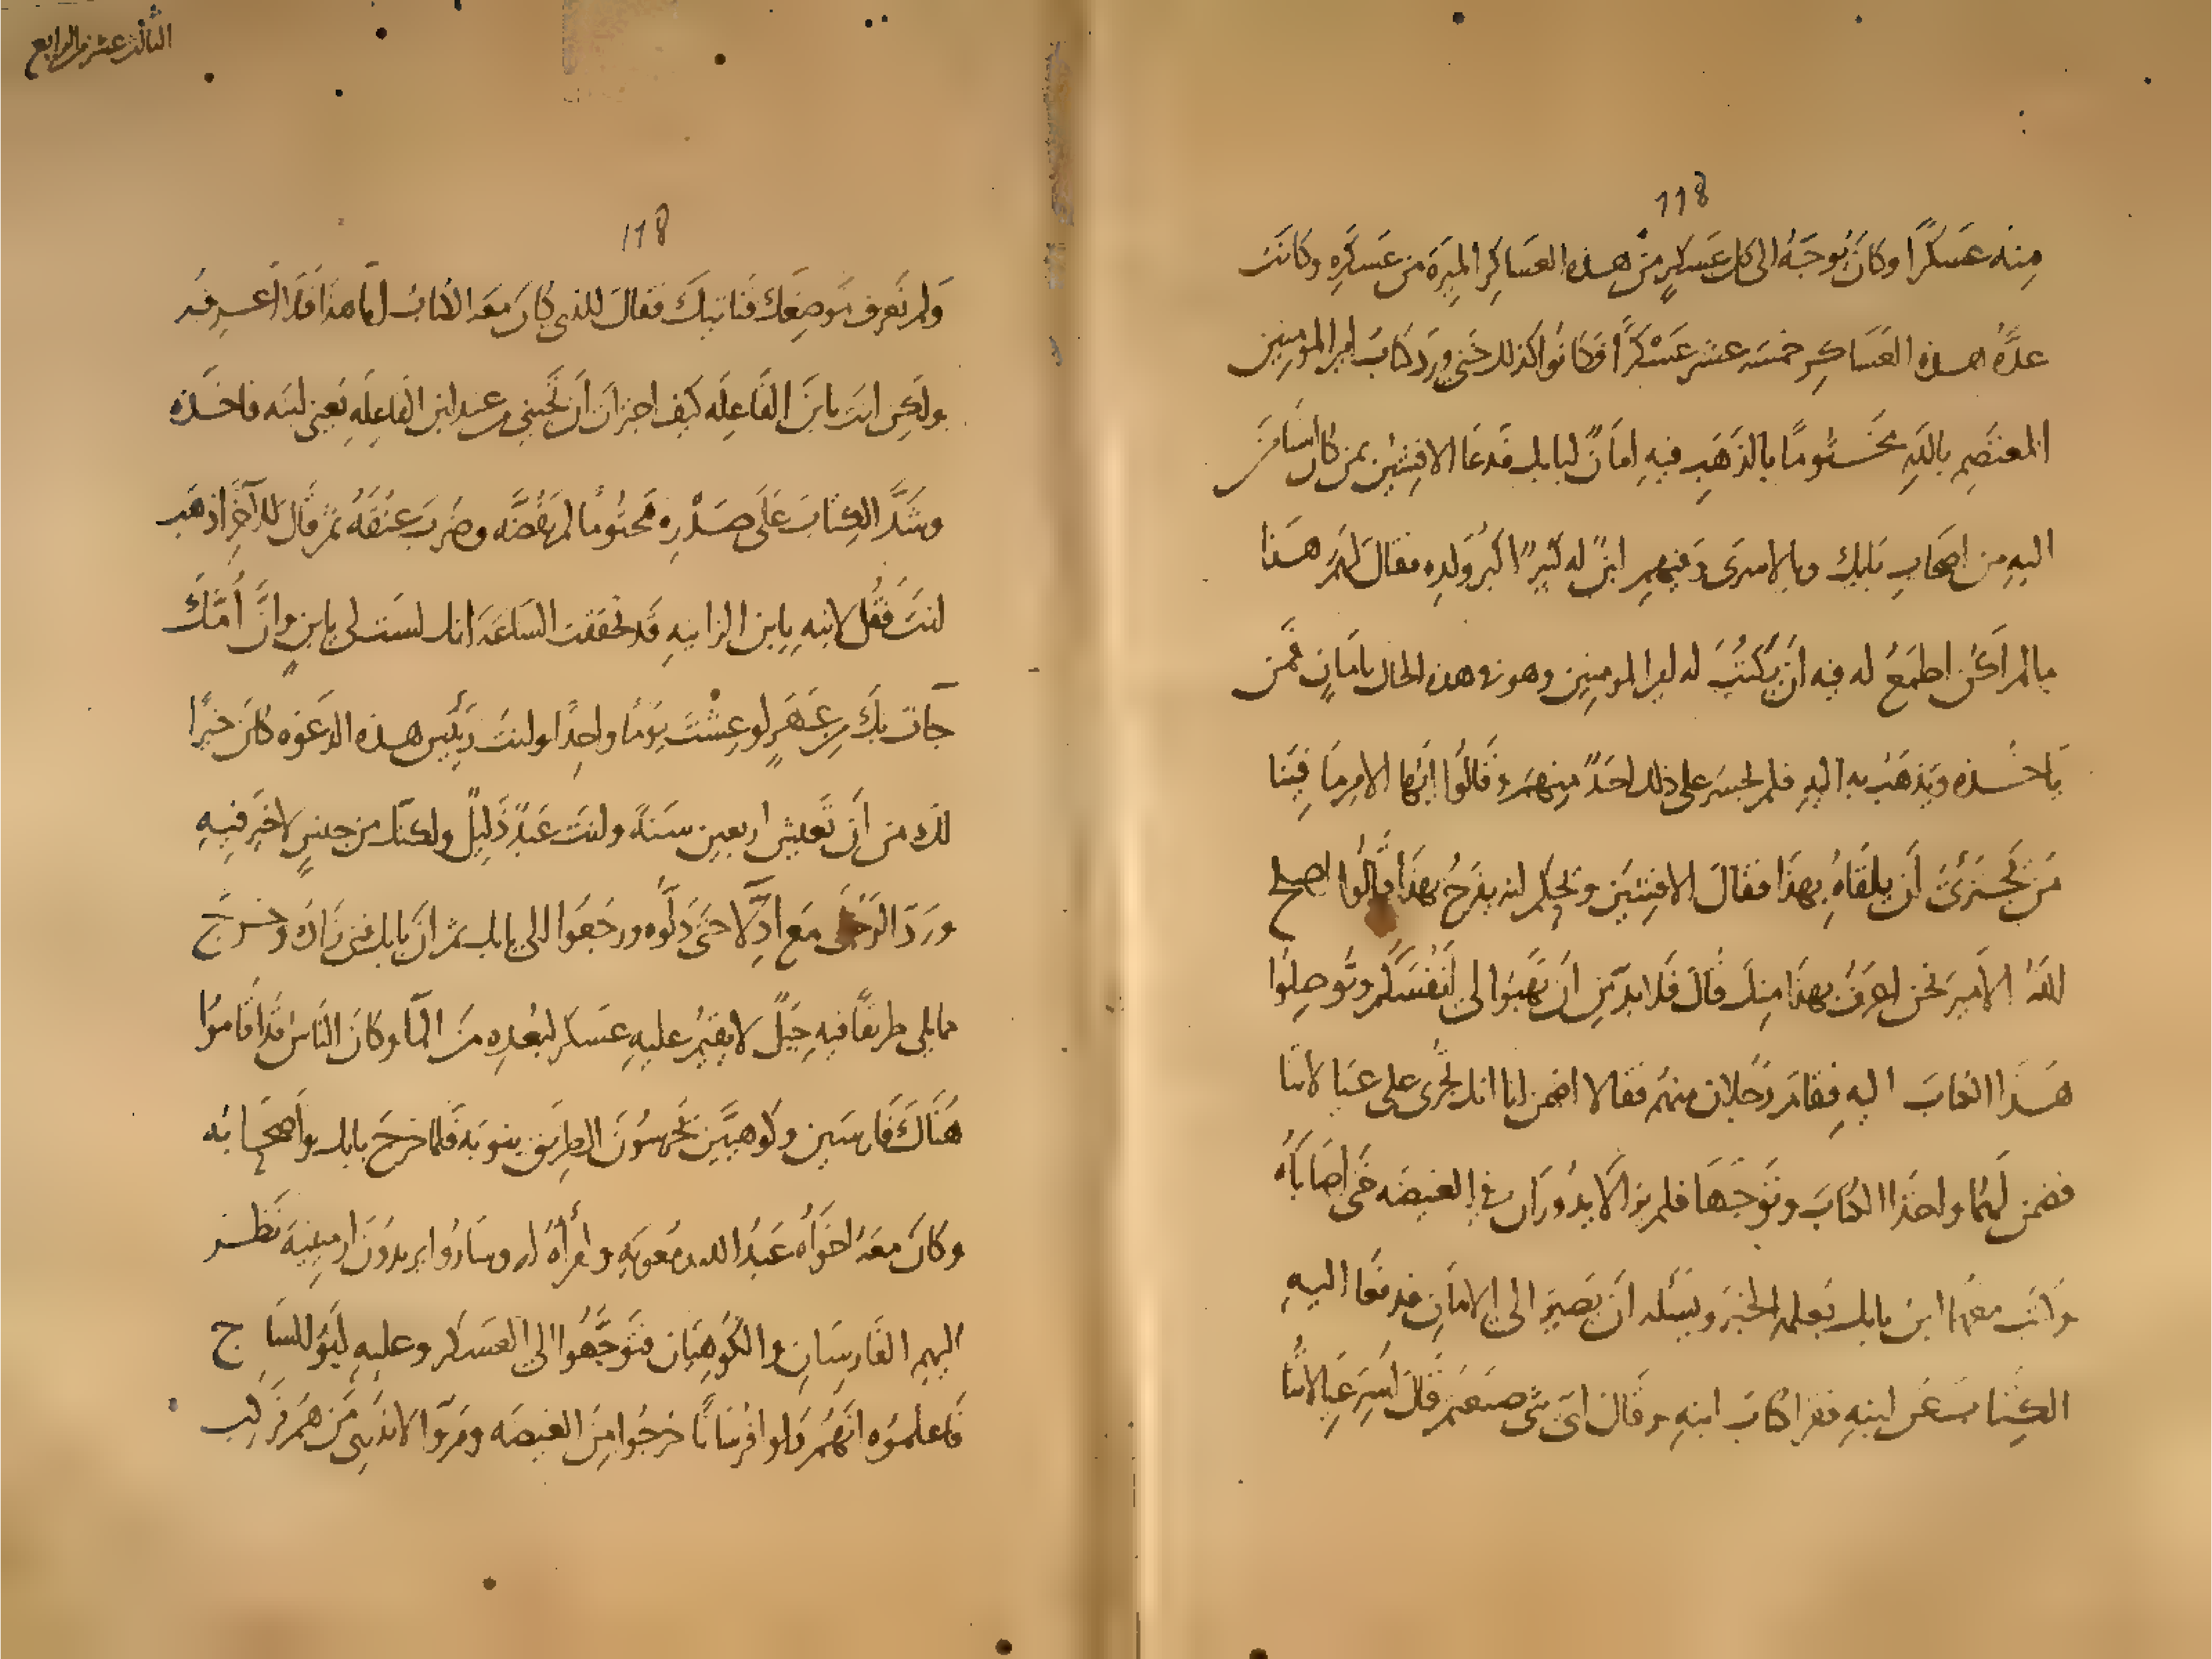 118
منه عسكرًا وكان يوجه الى كل عسكر من هذه العساكر الميرة من عسكره وكانت
عدة هذه العساكر خمسه عشر عسكرًا فكانوا كذلك حتى ورد كتاب امير المومنين
المعتصم بالله مختومًا بالذهب فيه امان لبابك فدعا الافشين بمن كان استامن
اليه من اصحاب بابك وبالاسرى وفيهم ابن له كبير اكبر ولده فقال لهم هذا
ما لم اكن اطمع له فيه ان يكتب له امير المومنين وهو في هذه الحال بامان فمن
ياخذه ويذهب به اليه فلم يجسر على ذلك احد منهم وقالوا ايها الامير ما فينا
من يجترئ ان يلقاه بهذا فقال الافشين ويحكم انه يفرح بهذا قالوا اصلح
الله الامير نحن اعرف بهذا منك قال فلا بد من ان تهبوا لي انفسكم وتوصلوا
هذا الكتاب اليه فقام رجلان منهم فقالا اضمن لنا انك تجرى على عيالاتنا
فضمن لهما واخذا الكتاب وتوجها فلم يزالا يدوران في الغيضه حتى اصاباه
وكتب معهما ابن بابك يعلمه الخبر ويسله ان يصير الى الامان فدفعا اليه
الكتاب عن ابنه فقرا كتاب ابنه وقال اى شى صنعتم قال اسر عيالاتنا
الثالث عشر من الرابع
118
ولم نعرف موضعك فناتيك فقال للذى كان معه الكتاب اما هذا فلا اعرفه
ولكن انت يابن الفاعله كيف اجترات ان تجيني من عند ابن الفاعله يعني ابنه فاخذه
وشد الكتاب على صدره مختومًا لم يفضه وضرب عنقه ثم قال للآخر اذهب
انت فقل لابنه يابن الزانيه قد تحققت الساعة انك لست لى بابن وان امك
جات بك من عهر لو عشت يومًا واحدًا وانت رئيس هذه الدعوه كان خيرًا
لك من ان تعيش اربعين سنة وانت عبد ذليل ولكنك من جنس لا خير فيه
ورد الرجل مع ادلا حتى دلوه ورجعوا الى بابك ثم ان بابك فنى زاده وخرج
مما يلى طريقًا فيه جبل لا يقيم عليه عسكر لبعده من المآ وكان الناس قد اقاموا
هناك فارسين وكوهيين يحرسون الطريق بنوبة فلما خرج بابك واصحابه
وكان معه اخواه عبد الله ومعويه وامرأة له وساروا يريدون ارمينية نظر
اليهم الفارسان والكوهيان فتوجهوا الى العسكر وعليه ابو الساج
فاعلموه انهم راوا فرسانًا خرجوا من الغيضه ومروا لا ندرى من هم فركب